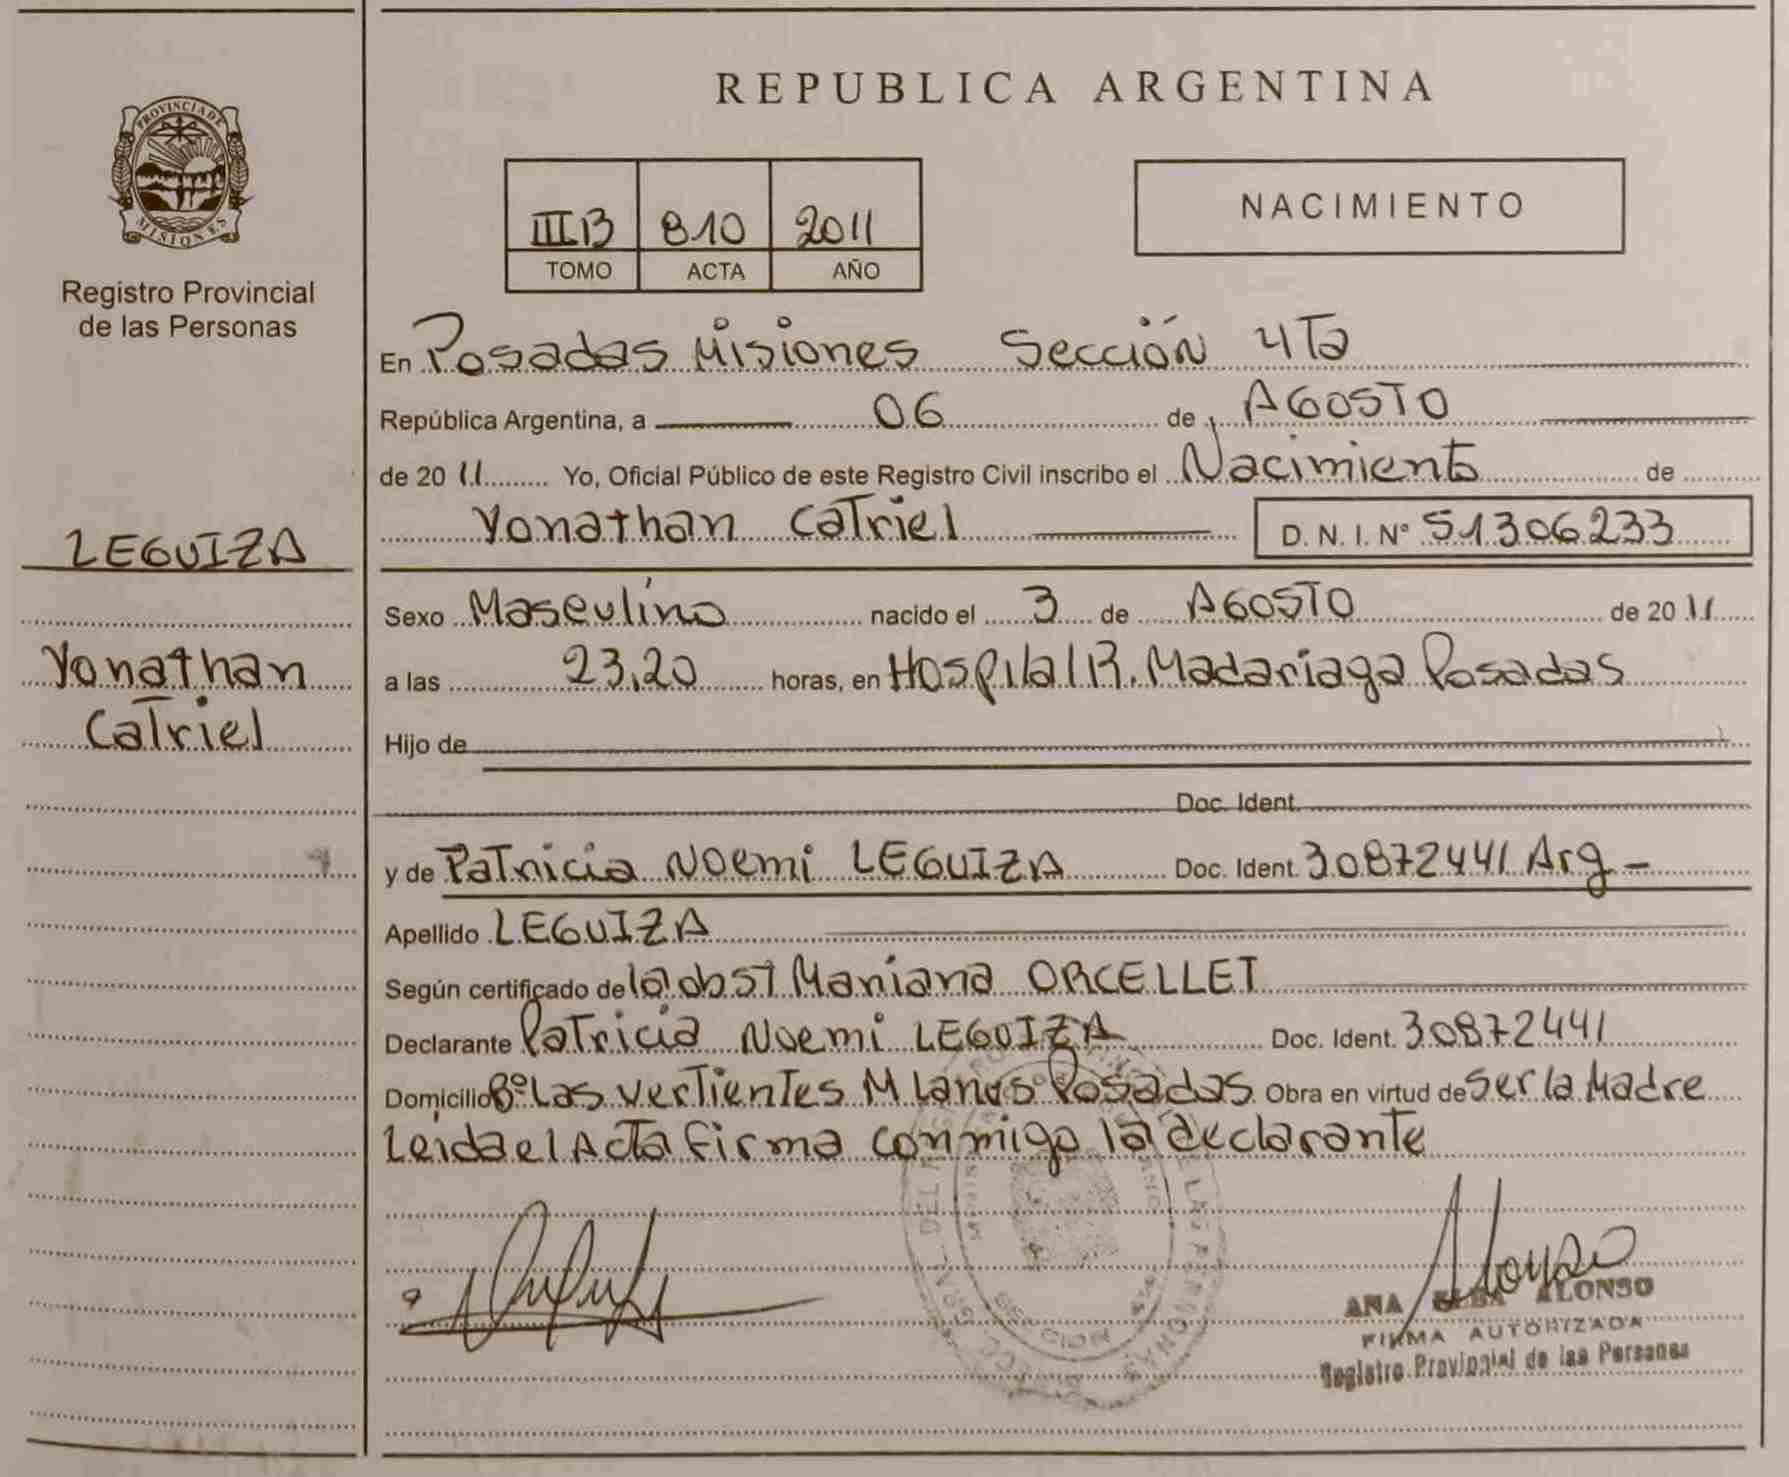 PROVINCIA DE
MISIONES
Registro Provincial
de las Personas
LEGUIZA
Yonathan
Catriel
REPUBLICA ARGENTINA
III B 810 2011
TOMO ACTA AÑO
NACIMIENTO
En Posadas Misiones Sección 4Ta
República Argentina, a 06 de AGOSTO
de 2011 Yo, Oficial Público de este Registro Civil inscribo el Nacimiento de
Yonathan Catriel D. N. I. N° 51306233
Sexo Masculino nacido el 3 de AGOSTO de 2011
a las 23,20 horas, en Hospital R. Madariaga Posadas
Hijo de
Doc. Ident.
y de Patricia Noemi LEGUIZA Doc. Ident. 30872441 Arg -
Apellido LEGUIZA
Según certificado de la obst Mariana ORCELLET
Declarante Patricia Noemi LEGUIZA Doc. Ident. 30872441
Domicilio B° Las Vertientes M Lanus Posadas Obra en virtud de Ser la Madre
Leida el Acta firma conmigo la declarante
Alonso
ANA ELBA ALONSO
FIRMA AUTORIZADA
Registro Provincial de las Personas